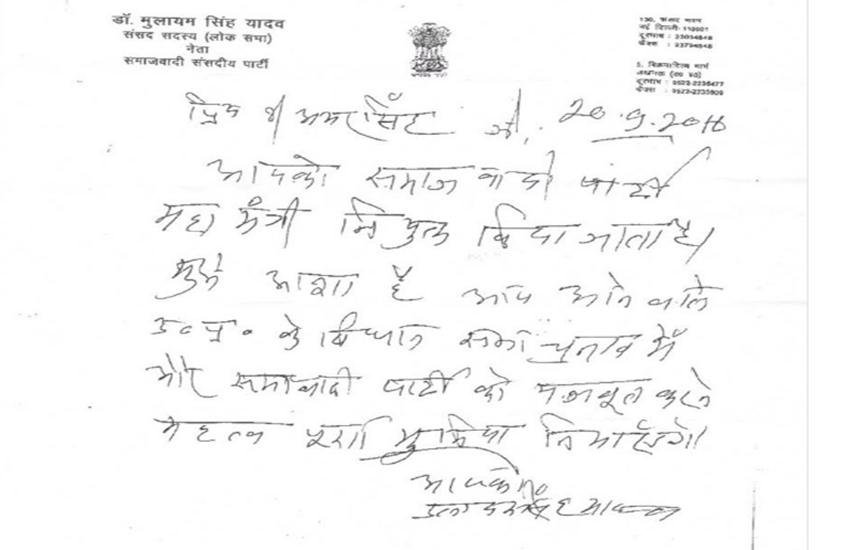 डॉ. मुलायम सिंह यादव
संसद सदस्य (लोक सभा)
नेता
समाजवादी संसदीय पार्टी
130, संसद भवन
नई दिल्ली-110001
दूरभाष : 23034848
फैक्स : 23794848
5, विक्रमादित्य मार्ग
लखनऊ (उ० प्र०)
दूरभाष : 0522-2235477
फैक्स : 0522-2235809
प्रिय श्री अमर सिंह जी, 20.9.2016
आपको समाजवादी पार्टी
महामंत्री नियुक्त किया जाता है।
मुझे आशा है आप आने वाले
उ०प्र० के विधान सभा चुनाव में
और समाजवादी पार्टी को मजबूत करने
महत्व पूर्ण भूमिका निभायेंगे।
आपका
मुलायम सिंह यादव